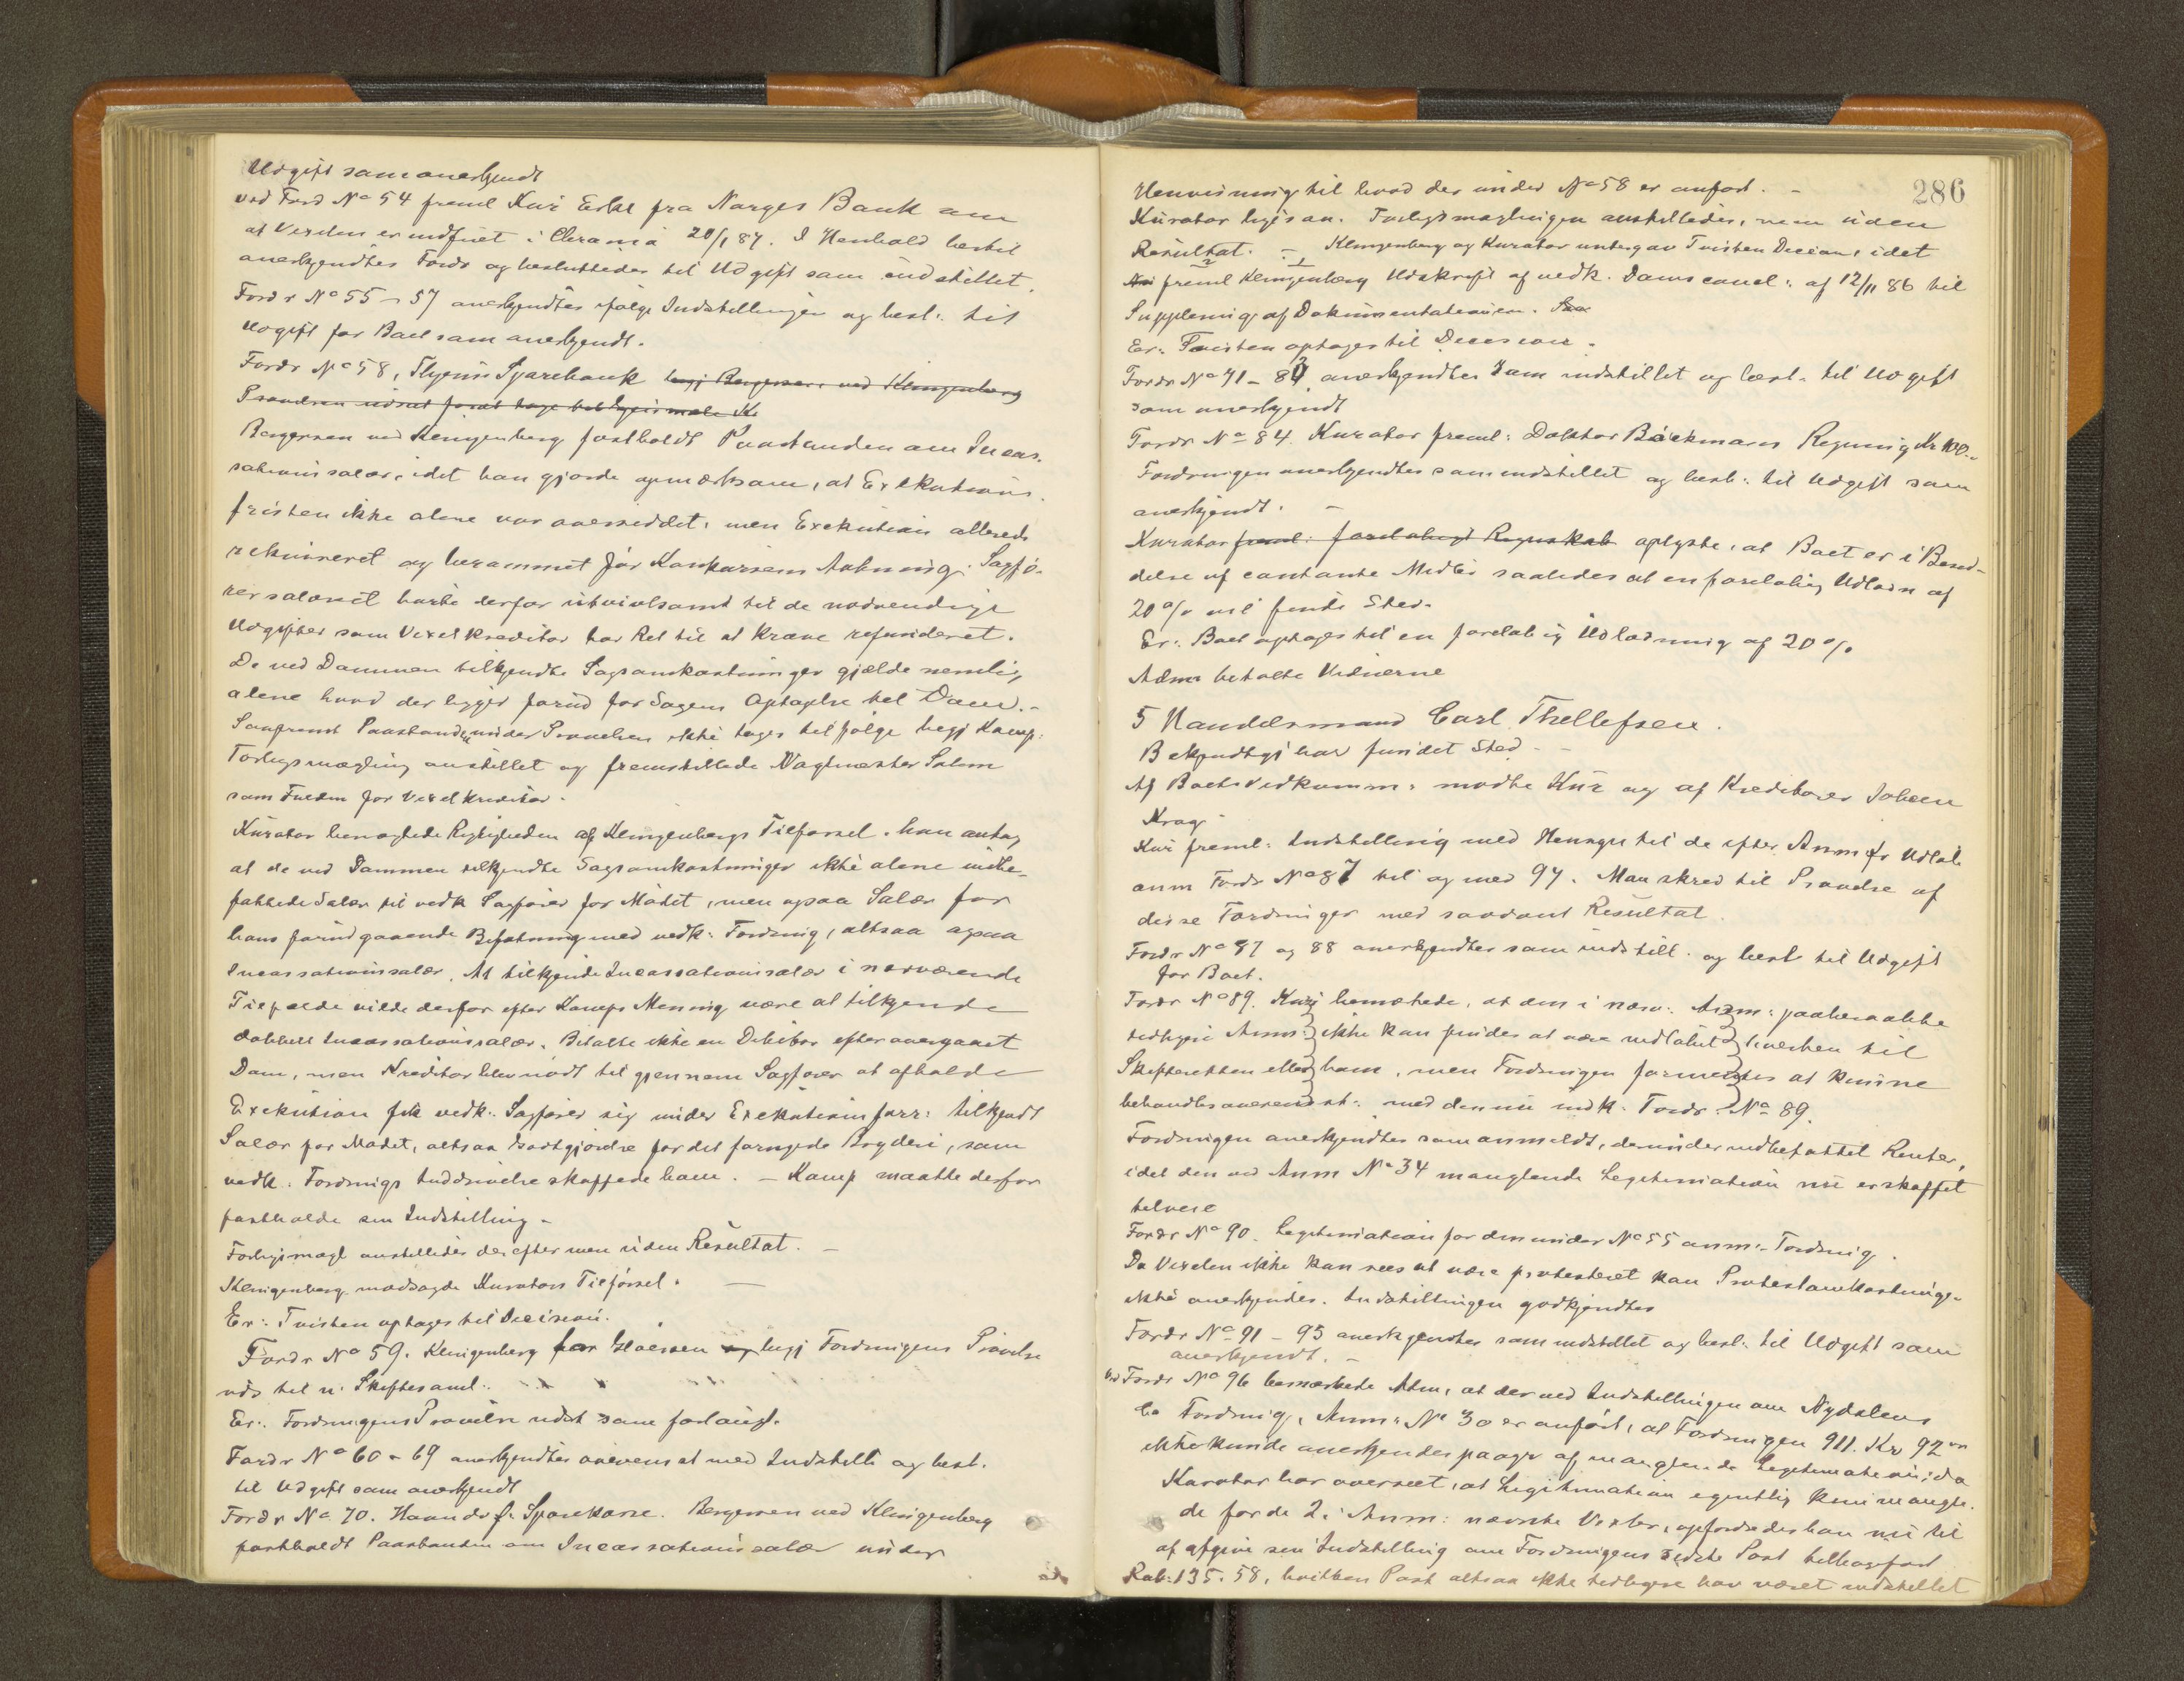 Udgift som anerkjendt
ved Ford No 54 freml Kur Erkl fra Norges Bank om
at Vexlen er indfriet i Chrania 20/1 87. I Henhold hertil
anerkjendtes Fordr og besluttedes til Udgift som indstillet.
Fordr No 55 - 57 anerkjendtes ifølge Indstillingen og besl: til
Udgift for Boet som anerkjendt.
Fordr No 58, Thyems Sparebank begj Bergersen ved Klingenberg
Prøvelsen udsat forat tage beslutning Kr
Bergersen ved Klingenberg fastholdt Paastanden om Incas-
sationssalær, idet han gjorde opmærksom, at Exekutions-
fristen ikke alene var oversiddet, men Exekution allerede
rekvireret og berammet før Konkursens Aabning. Sagfø-
rersalæret hørte derfor utvivlsomt til de nødvendige
Udgifter som Vexelkreditor har Ret til at kræve refunderet.
De ved Dommen tilkjendte Sagsomkostninger gjælde nemlig
alene hvad der ligger forud for Sagens Optagelse til Dom.-
Saafremt Paastanden under Prøvelsen ikke tages tilfølge begj Kamp:
Forligsmægling anstillet og fremstillede Vagtmester Salom
som Fuldm for Vexelkreditor.
Kurator benægtede Rigtigheden af Klingenbergs Tilførsel. han antog
at de ved Dommen tilkjendte Sagsomkostninger ikke alene indbe-
fattede Salær til vedk Sagfører for Mødet, men ogsaa Salær for
hans forudgaaende Befatning med vedk: Fordring, altsaa ogsaa
Incassationssalær. At tilkjende Incassationssalær i nærværende
Tilfælde vilde derfor efter Kamps Mening være at tilkjende
dobbelt Incassationssalær. Betalte ikke en Debitor efter overgaaet
Dom, men Kreditor blev nødt til gjennem Sagfører at afholde
Exekution fik vedk: Sagfører sig under Exekutionsforr: tilkjendt
Salær for Mødet, altsaa Godtgjørelse for det fornyede Bryderi, som
vedk: Fordrings Inddrivelse skaffede ham. - Kamp maatte derfor
fastholde sin Indstilling -
Forligsmægl anstilledes derefter men uden Resultat. -
Klingenberg modsagde Kurators Tilførsel. -
Er: Tvisten optages til Decision.
Fordr No 59. Klingenberg for Hoensen og begj Fordringens Prøvelse
uds til n: Skiftesaml:
Er: Fordringens Prøvelse udsat som forlangt.
Fordr No 60 - 69 anerkjendtes overensst med Indstill og besl.
til Udgift som anerkjendt
Fordr No 70. Haands f. Sparekasse. Bergersen ved Klingenberg
fastholdt Paastanden om Incassationssalær under
286
Henvisning til hvad der under No 58 er anført. -
Kurator ligesaa. Forligsmæglingen anstilledes, men uden
Resultat. - Klingenberg og Kurator undergav Tvisten Decision, idet
freml Klingenberg Udskrift af vedk. Domsconcl: af 12/11 86 til
Supplering af Dokumentationen.
Er: Tvisten optages til Decision.
Fordr No 71 - 83 anerkjendtes som indstillet og besl. til Udgift
som anerkjendt
Fordr No 84. Kurator freml: Doktor Bäckmans Regning Kr 100.-
Fordringen anerkjendtes som indstillet og besl: til Udgift som
anerkjendt. -
Kurator freml: foreløbigt Regnskab oplyste, at Boet er i Besid-
delse af contante Midler saaledes at en foreløbig Udlodn af
20 % vil finde Sted.
Er: Boet optages til en foreløbig Udlodning af 20 %
Adm: betalte Vidnerne
5 Handelsmand Carl Thellefsen.
Bekjendtgj har fundet Sted. -
Af Boets Vedkomm: mødte Kur og af Kreditorer Johan
Krag.
Kur freml: Indstilling med Hensyn til de efter Anm fr Udløb
anm Fordr No 87 til og med 97. Man skred til Prøvelse af
disse Fordringer med saadant Resultat.
Fordr No 87 og 88 anerkjendtes som indstill. og besl til Udgift
for Boet.
Fordr No 89. Kur bemærkede, at den i nærv: Anm: paaberaabte
tidligere Anm: ikke kan findes at være indløbet hverken til
Skifteretten eller ham, men Fordringen formentes at kunne
behandles overensst: med den nu indk. Fordr. No 89.
Fordringen anerkjendtes som anmeldt, derunder indbefattet Renter,
idet den ved Anm No 34 manglende Legitimation nu er skaffet
tilveie
Fordr No 90. Legitimation for den under No 55 anm: Fordring.
Da Vexelen ikke kan sees at være protesteret kan Protestomkostninger
ikke anerkjendes. Indstillingen godkjendtes
Fordr No 91 - 95 anerkjendtes som indstillet og besl: til Udgift som
anerkjendt. -
Ved Fordr No 96 bemærkede Adm, at der ved Indstillingen om Nydalens
Co Fordring, Anm: No 30 er anført, at Fordringen 911. Kr 92 ør
ikke kunde anerkjendes paagr af manglende Legitimation, da
Kurator har overseet, at Legitimation egentlig kun mangle-
de for de 2 i Anm: nævnte Vexler, opfordredes han nu til
at afgive sin Indstilling om Fordringens sidste Post tilbageført
Rab: 135. 58, hvilken Post altsaa ikke tidligere har været indstillet